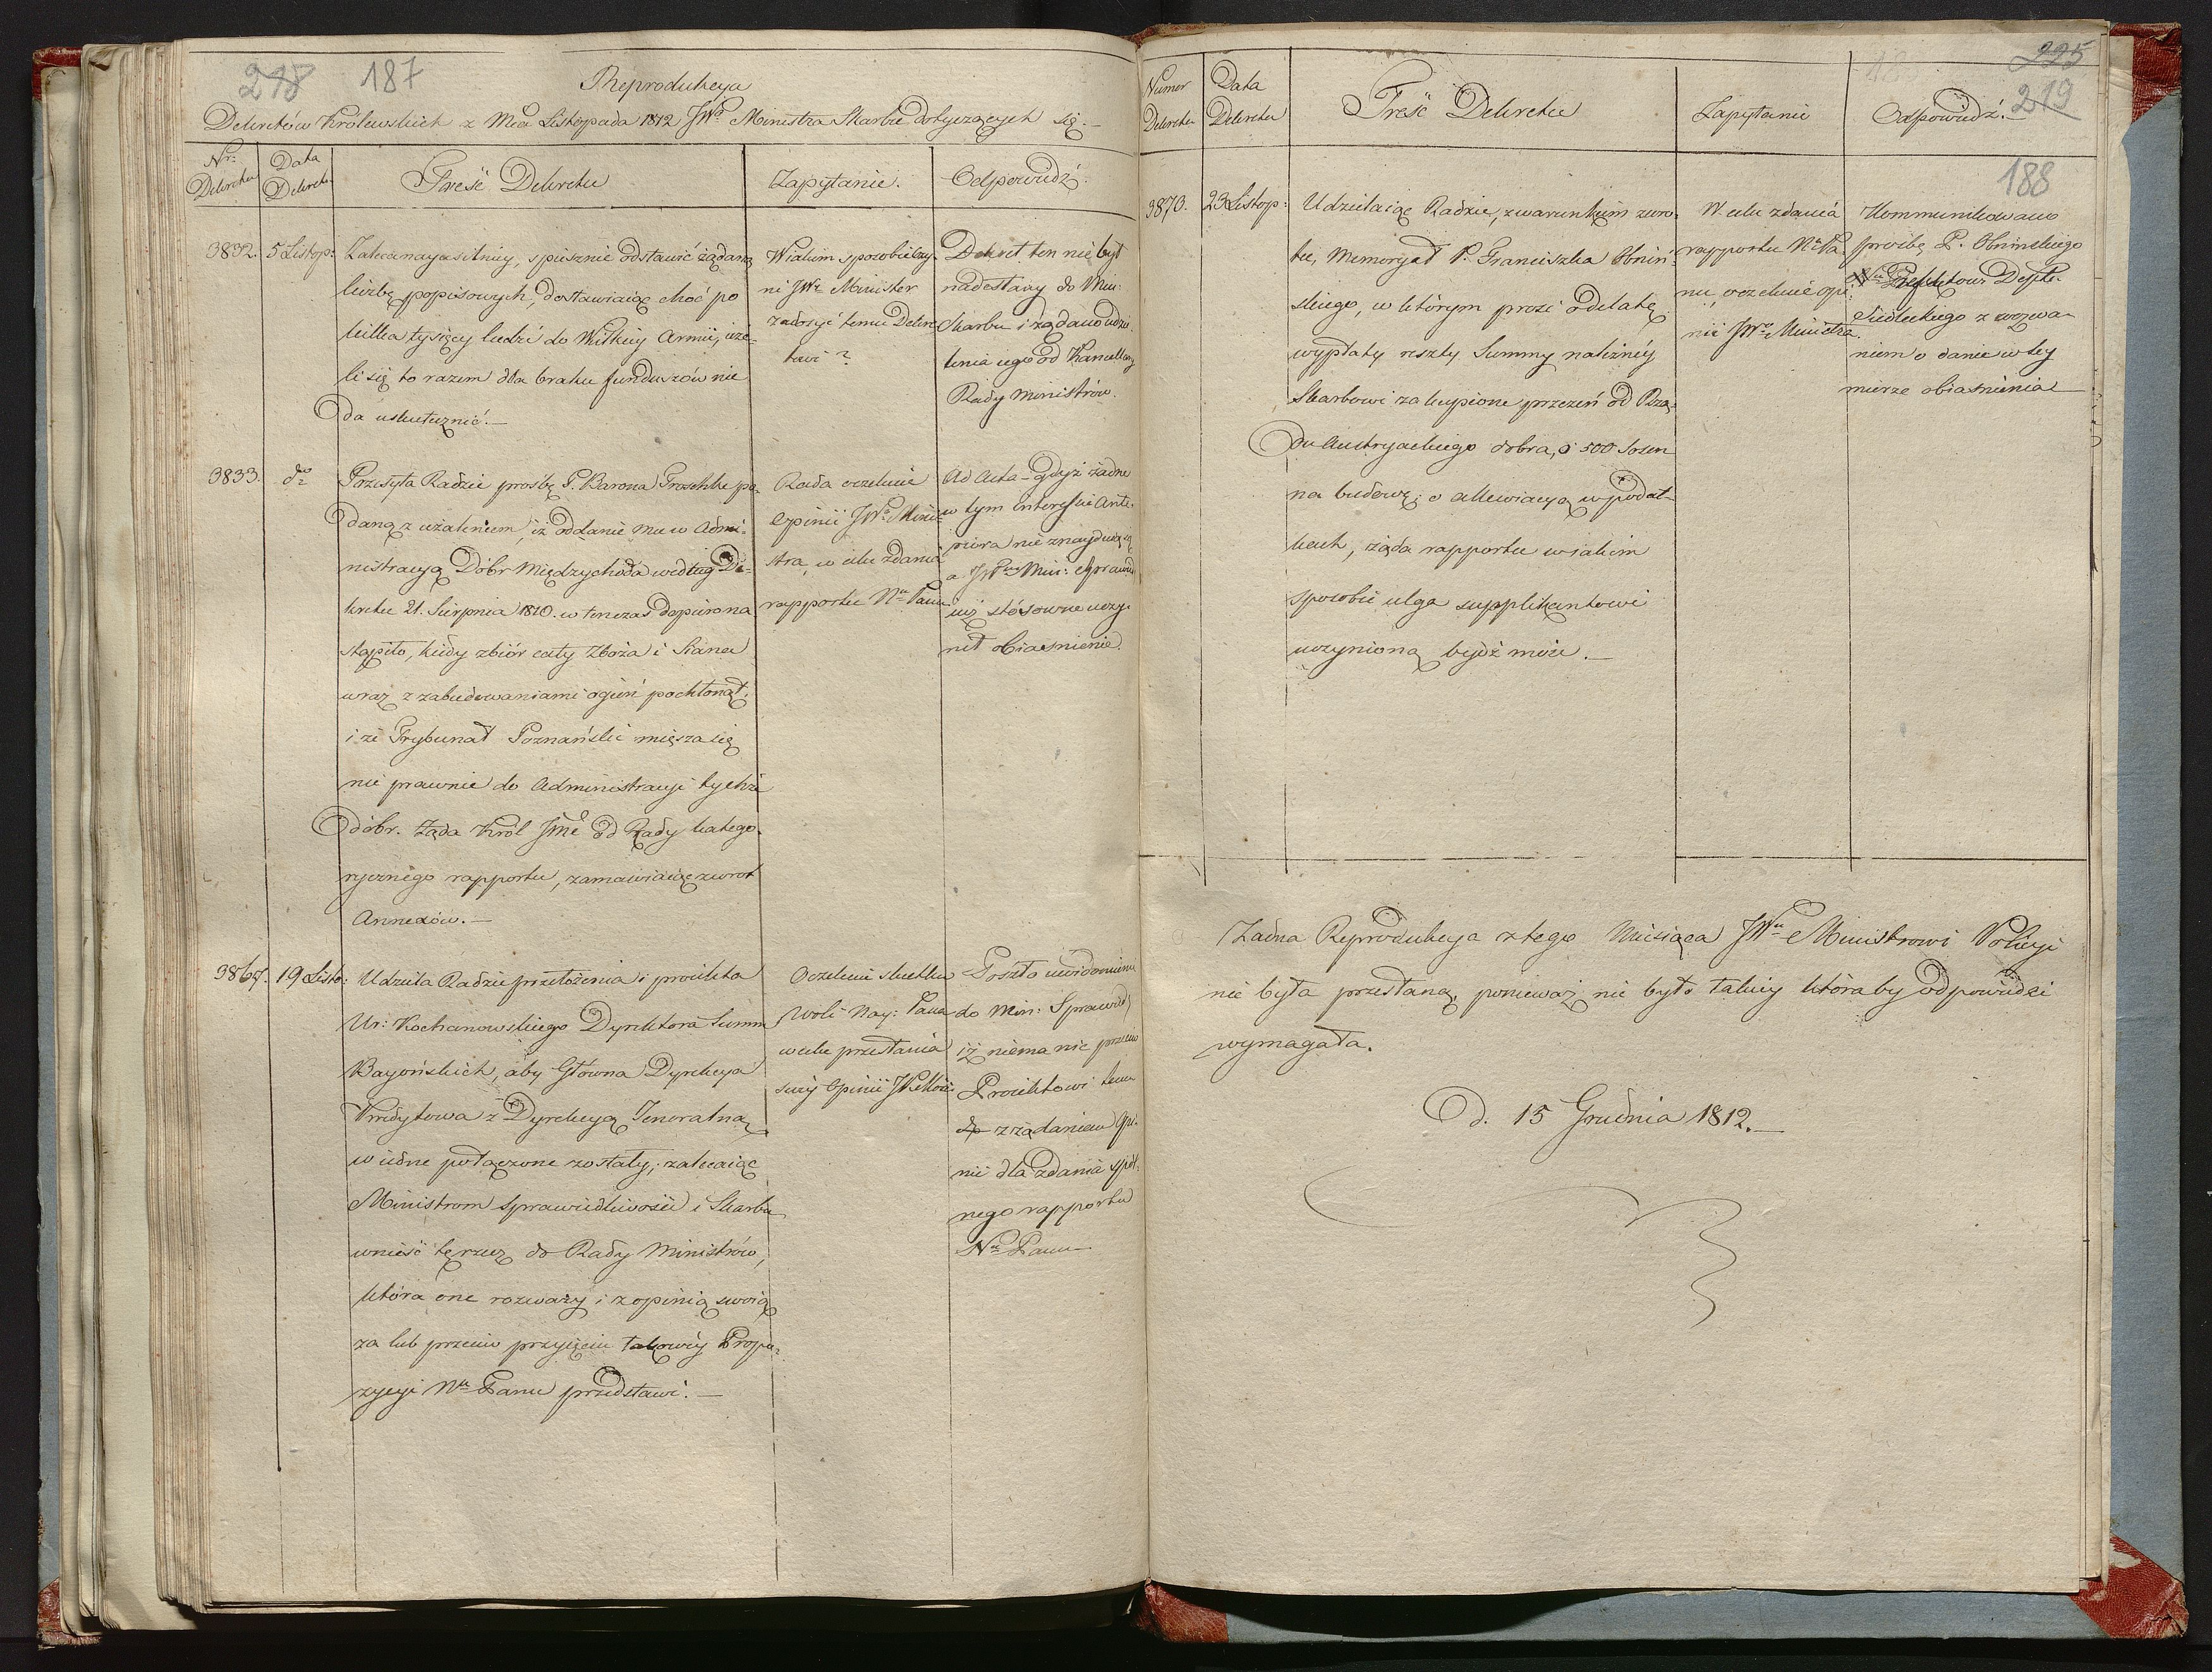 218 187
Reprodukcya
Dekretów Królewskich z Mca Listopada 1812 JWo Ministra Skarbu dotyczących się.-
Nr: Dekretu
Data Dekretu
Treść Dekretu
Zapytanie.
Odpowiedź.
3832.
5 Listop:
Zaleca nayusilniey, spiesznie odstawić żądaną
liczbę popisowych, dostawiaiąc choć po
kilka tysięcy ludzi do Wielkiey Armii, ieże-
li się to razem dla braku funduszów nie
da uskutecznić.-
W iakim sposobie czy-
ni JWy Minister
zadosyć temu Dekre-
towi?
Dekret ten nie był
nadesłany do Min:
Skarbu i żądano udzie-
lenia iego od Kancellaryi
Rady Ministrów.
3833.
do
Przesyła Radzie prośbę P. Barona Troschke po-
daną z użaleniem, iż oddanie mu w Admi-
nistracyą Dóbr Międzychoda według De-
kretu 21. Sierpnia 1810. w tenczas dopiero na
stąpiło, kiedy zbiór cały Zboża i Siana
wraz z zabudowaniami ogień pochłonął;
i że Trybunał Poznański mięsza się
nie prawnie do Administracyi tychże
dóbr. Żąda Król Jmć od Rady katego-
rycznego rapportu, zamawiaiąc zwrot
Annexów.-
Rada oczekuie
Opinii JWo Mini-
stra, w celu zdania
rapportu Nu Panu
Ad Acta - gdyż żadne
w tym interessie Ante-
piora nie znayduią się
a JWny Min: Sprawied
iuż stósowne uczy-
nił obiaśnienie.
3867.
19 Listo:
Udziela Radzie przełożenia i proiekta
Ur: Kochanowskiego Dyrektora Summ
Bayońskich, aby Główna Dyrekcya
Kredytowa z Dyrekcyą Jeneralną
w iedne połączone zostały; zalecaiąc
Ministrom Sprawiedliwości i Skarbu
wnieść tę rzecz do Rady Ministrów,
która one rozważy i z opinią swoią
za lub przeciw przyięciu takowey Propo-
zycyi Nu Panu przedstawi.-
Oczekuie skutku
woli Nay: Pana
w celu przesłania
swéy Opinii JW Mini:
Poszło uwidomienie
do Min: Sprawied
iż niema nic przeciw
Proiektowi temu
z żądaniem Opi-
nii dla zdania spól-
nego rapportu
Nu Panu
225
219
188
Numer Dekretu
Data Dekretu
Treść Dekretu
Zapytanie
Odpowiedź.
3870.
23 Listop:
Udzielaiąc Radzie, z warunkiem zwro-
tu, Memoryał P. Franciszka Obniń-
skiego, w którym prosi o delatę
wypłaty reszty Summy należnéy
Skarbowi za kupione przezeń od Rzą-
du Austryackiego dobra, o 500 Sosen
na budowę; o allewiacyą w podat-
kach, żąda rapportu w iakim
sposobie ulga supplikantowi
uczynioną bydź może.-
W celu zdania
rapportu Nu Pa-
nu, oczekuie opi-
nii JWo Ministra.
Kommunikowano
prośbę P. Obnińskiego
Prefektowi Deptu
Siedleckiego z wezwa-
niem o danie w tey
mierze obiaśnienia
Żadna Reprodukcya z tego Miesiąca JWu Ministrowi Policyi
nie była przesłaną, ponieważ nie było takiey któraby odpowiedzi
wymagała.
D. 15 Grudnia 1812.-